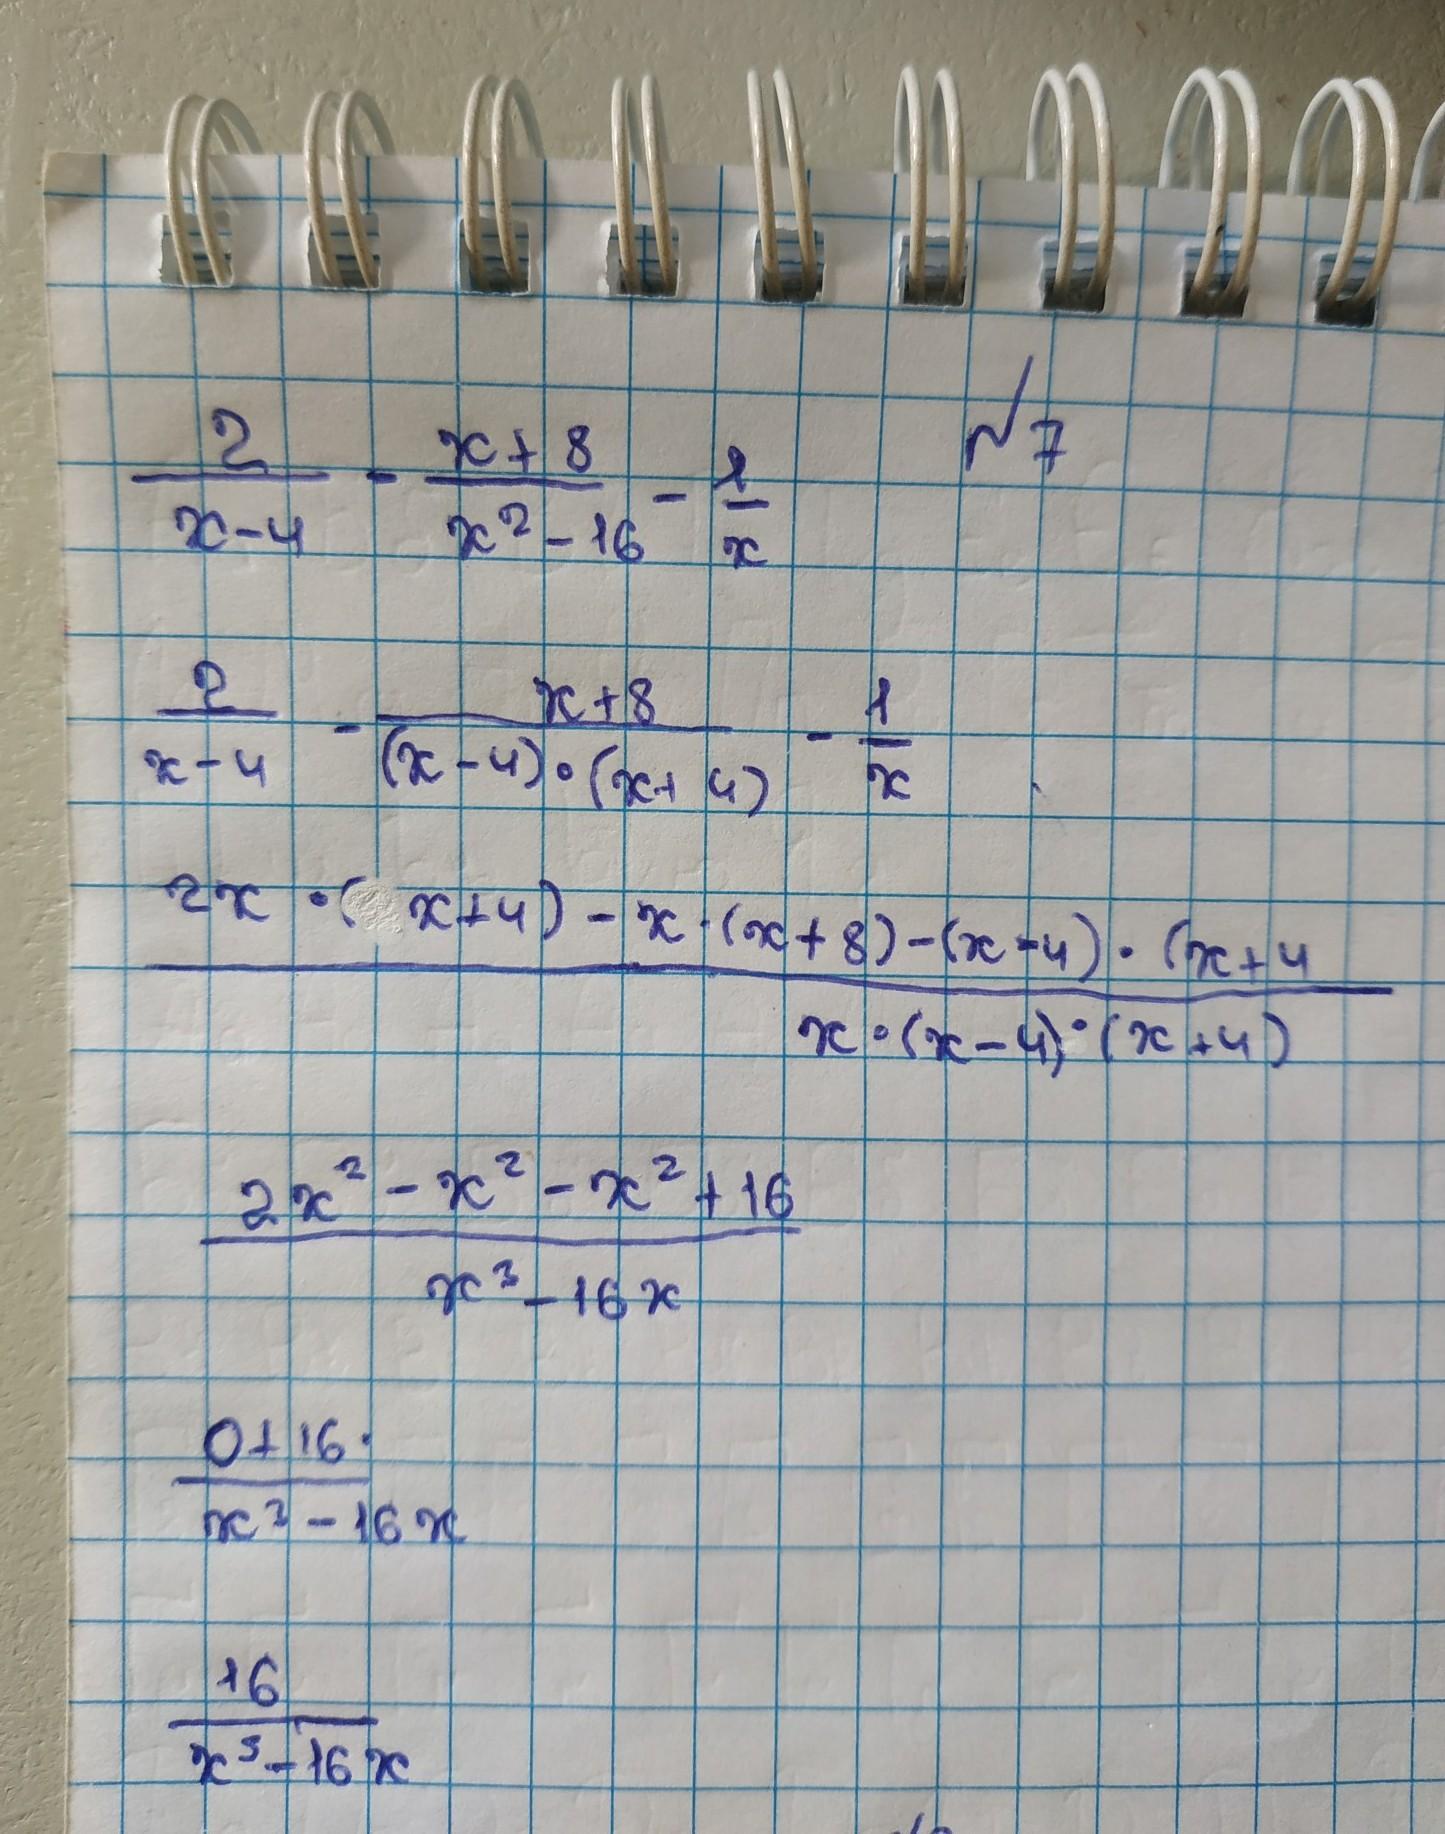 №7
2/(x-4) - (x+8)/(x²-16) - 1/x
2/(x-4) - (x+8)/((x-4)·(x+4)) - 1/x
2x·(x+4) - x·(x+8) - (x-4)·(x+4
x·(x-4)·(x+4)
2x² - x² - x² + 16
x³ - 16x
0+16
x³ - 16x
16
x³ - 16x